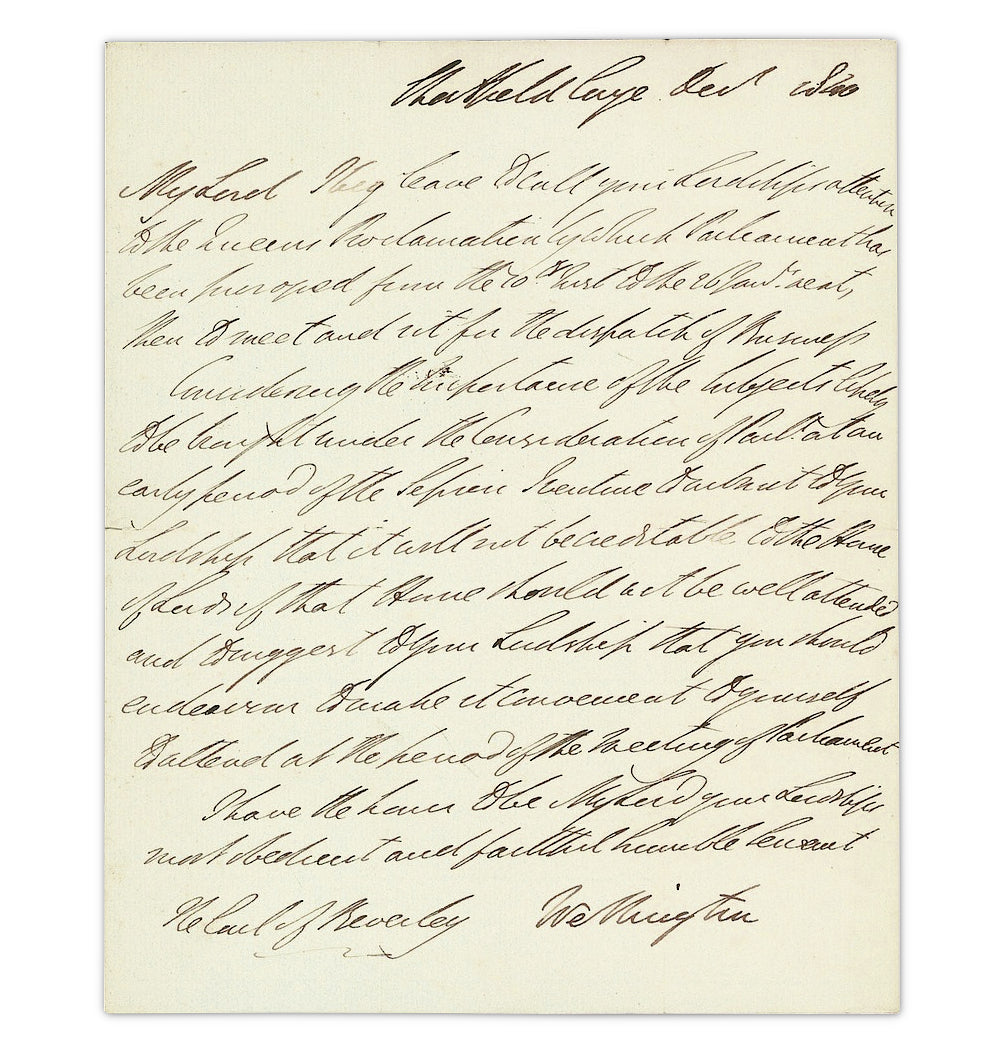 Strathfield Saye. Decr 1840
My Lord I beg leave to call your Lordship's attention
to the Queens Proclamation by which Parliament has
been prorogued from the 10th Inst to the 26 Janr. next,
then to meet and sit for the dispatch of Business
Considering the importance of the Subjects likely
to be brought under the Consideration of Parlt. at an
early period of the Session I venture to submit to your
Lordship that it will not be creditable to the House
of Lords if that House should not be well attended
and to suggest to your Lordship that you should
endeavour to make it convenient to yourself
to attend at the period of the Meeting of Parliament
I have the honor to be My Lord your Lordships
most obedient and faithful humble Servant
The Earl of Beverley Wellington